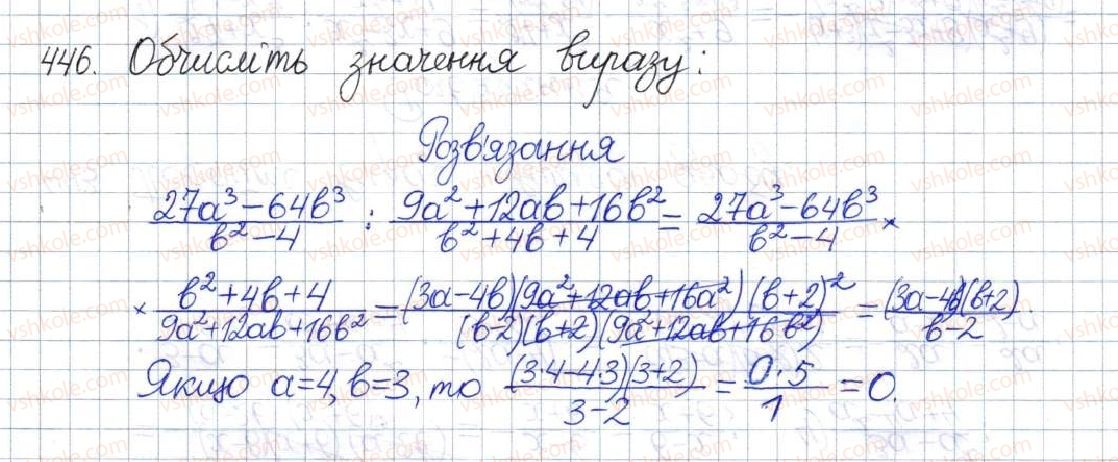 446. Обчисліть значення виразу:
Розв'язання
(27a³ - 64b³)/(b² - 4) : (9a² + 12ab + 16b²)/(b² + 4b + 4) = (27a³ - 64b³)/(b² - 4) ×
× (b² + 4b + 4)/(9a² + 12ab + 16b²) = ((3a - 4b)(9a² + 12ab + 16a²)(b + 2)²)/((b - 2)(b + 2)(9a² + 12ab + 16b²)) = ((3a - 4b)(b + 2))/(b - 2).
Якщо a = 4, b = 3, то ((3·4 - 4·3)(3 + 2))/(3 - 2) = (0·5)/1 = 0.